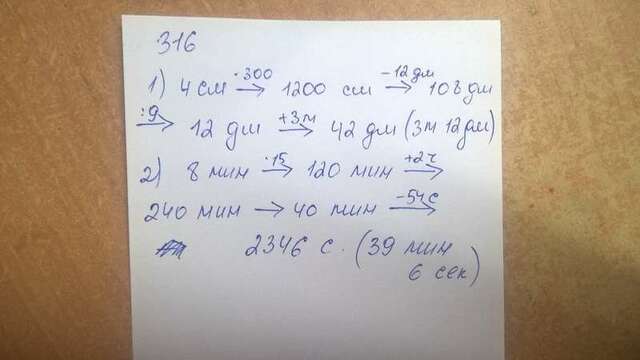 316
1) 4 см ·300→ 1200 см −12 дм→ 108 дм
:9→ 12 дм +3м→ 42 дм (3м 12дм)
2) 8 мин ·15→ 120 мин +2ч→
240 мин → 40 мин −54с→
2346 с. (39 мин
6 сек)